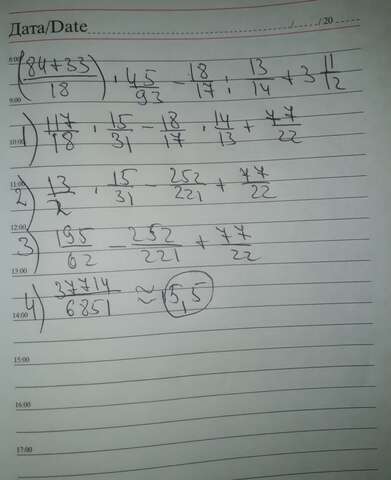 Дата/Date ......../....../ 20 ......
8:00 ((84+33)/18) · 45/93 - 18/17 : 13/14 + 3 11/12
9:00
1) 117/18 · 15/31 - 18/17 · 14/13 + 77/22
10:00
11:00
2) 13/2 · 15/31 - 252/221 + 77/22
12:00
3) 195/62 - 252/221 + 77/22
13:00
4) 37714/6851 ≈ 5,5
14:00
15:00
16:00
17:00